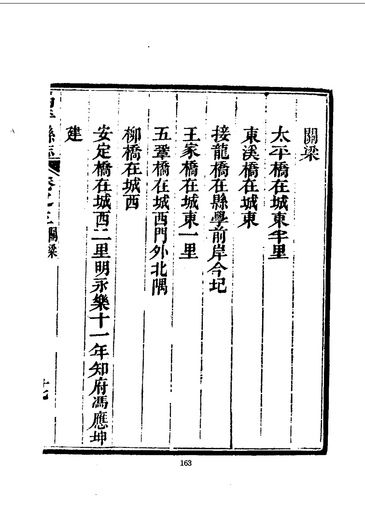 關梁
太平橋在城東半里
東溪橋在城東
接龍橋在縣學前岸今圮
王家橋在城東一里
五鞏橋在城西門外北隅
柳橋在城西
安定橋在城西二里明永樂十一年知府馮應坤
建
縣志
關梁
163